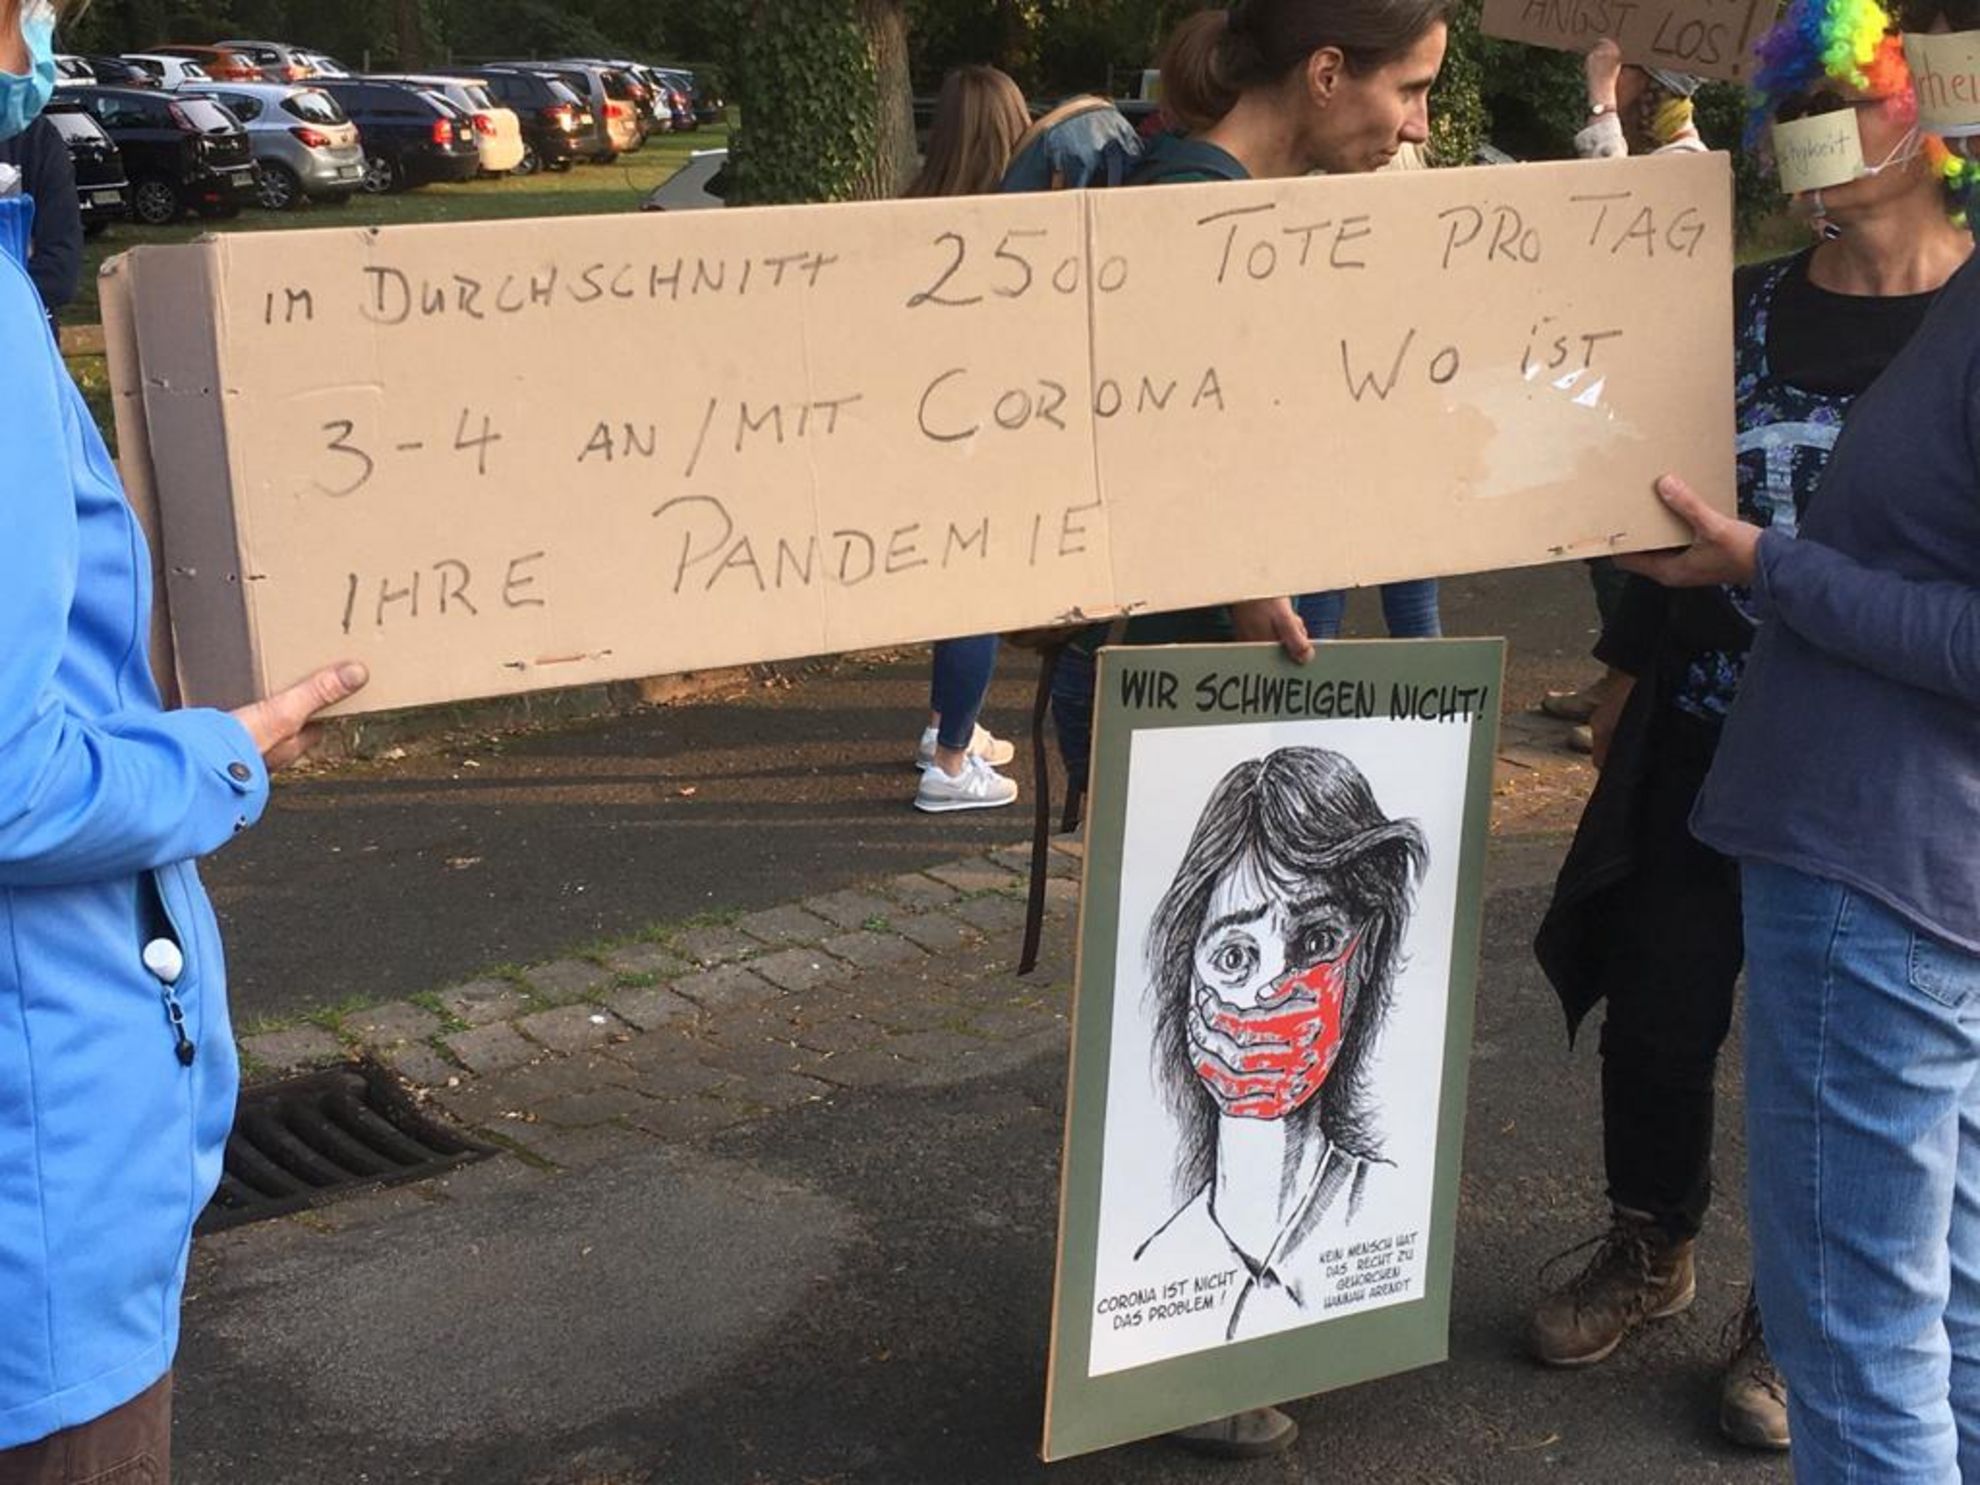 ANGST LOS!
IM DURCHSCHNITT 2500 TOTE PRO TAG
3-4 AN/MIT CORONA. WO IST
IHRE PANDEMIE
WIR SCHWEIGEN NICHT!
CORONA IST NICHT
DAS PROBLEM!
KEIN MENSCH HAT
DAS RECHT ZU
GEHORCHEN
HANNAH ARENDT